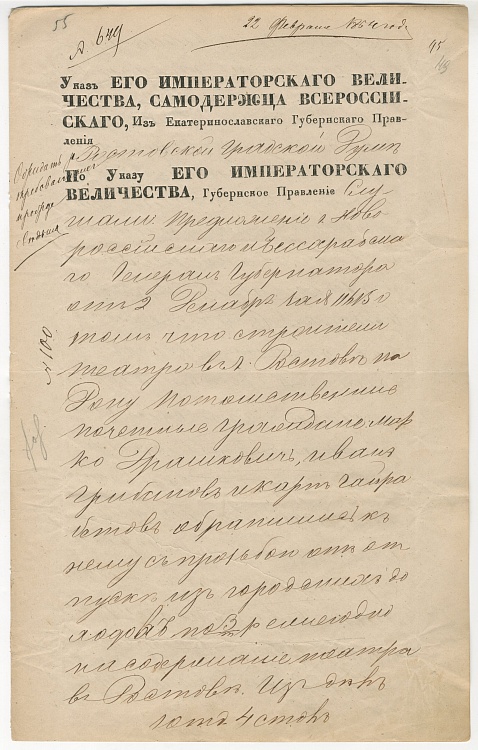 55
22 Февраля 1864 года
№ 649
95
Указъ ЕГО ИМПЕРАТОРСКАГО ВЕЛИ-
ЧЕСТВА, САМОДЕРЖЦА ВСЕРОССІЙ-
СКАГО, Изъ Екатеринославскаго Губернскаго Прав-
ленія
Ростовской Градской Думѣ
По Указу ЕГО ИМПЕРАТОРСКАГО
ВЕЛИЧЕСТВА, Губернское Правленіе Слу
шали Предложеніе г. Ново
россійскаго и Бессарабска
го Генералъ Губернатора
отъ 2 Декабря за № 11415 о
томъ что строители
театра въ г. Ростовѣ на
Дону потомственные
почетные граждане Мар
ко Драшковичъ, Иванъ
Грибановъ и Карпъ Гайра
бетовъ обратились къ
нему съ прозьбою объ от
пускѣ изъ городскихъ до
ходовъ по 3 т. р. ежегодно
на содержаніе театра
въ Ростовѣ. Изъ дѣлъ
1 отд. 4 столъ
№ 100